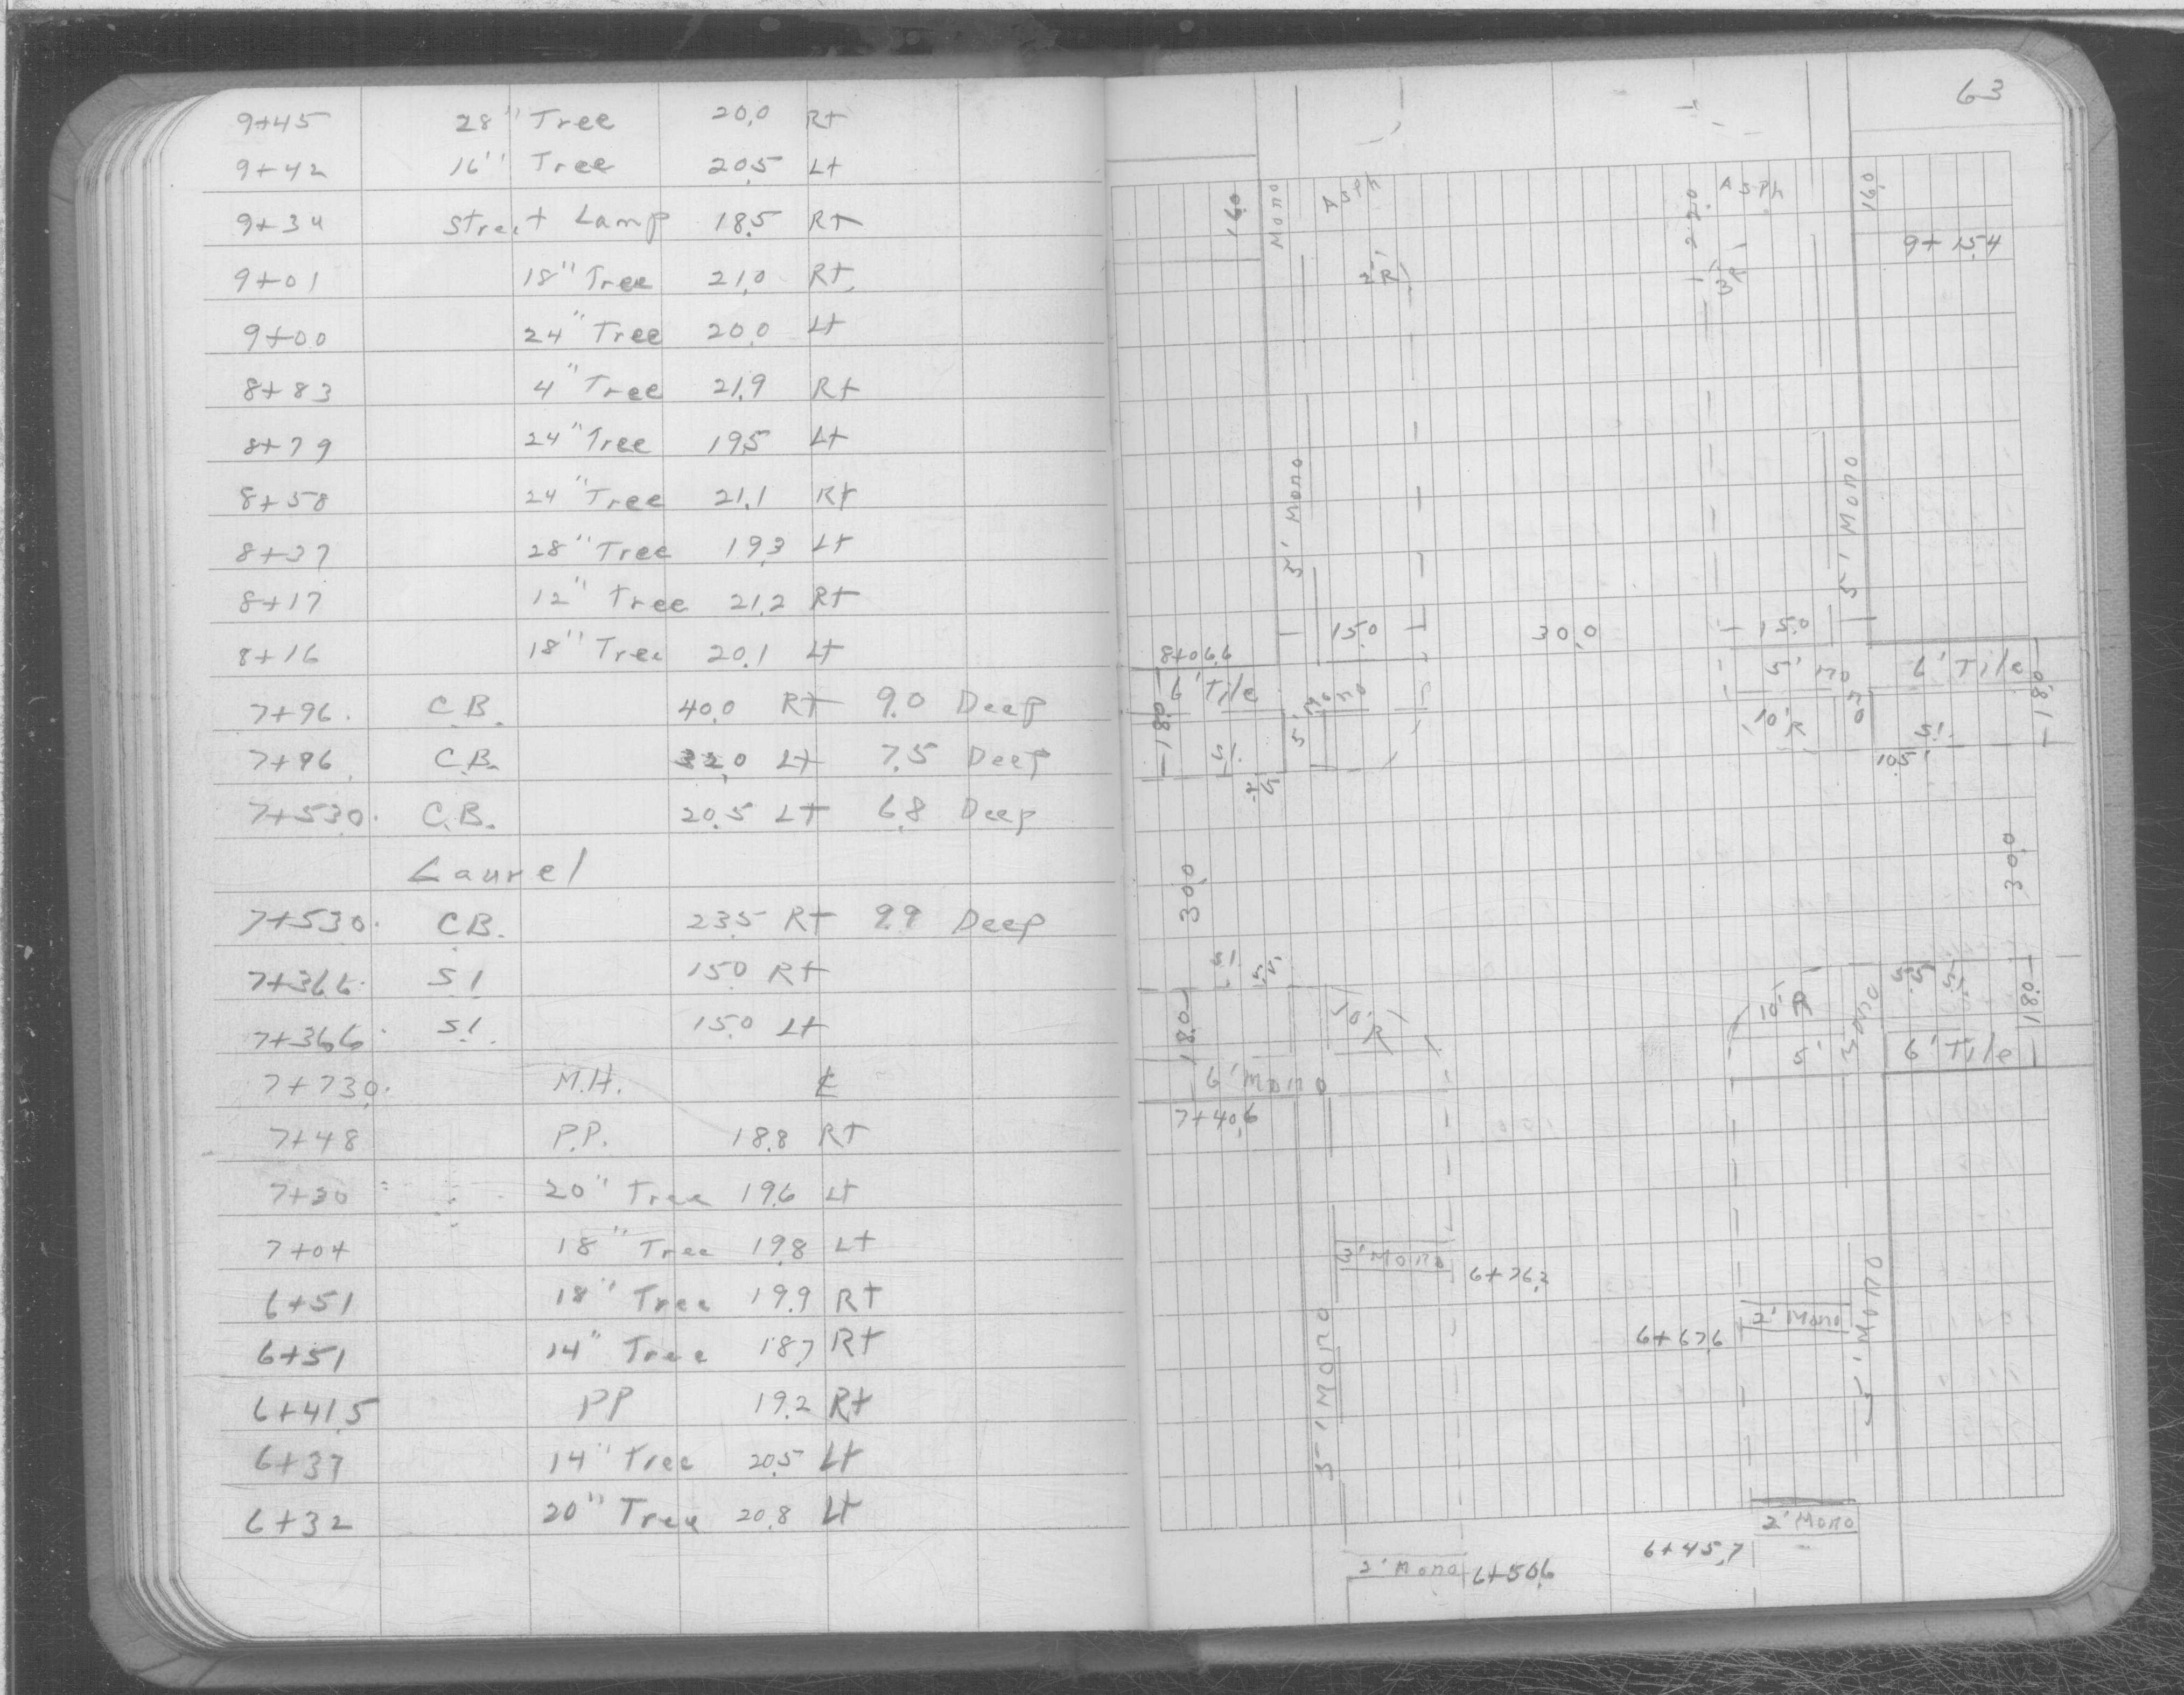 9+45 28" Tree 20.0 Rt
9+42 16" Tree 20.5 Lt
9+34 Street Lamp 18.5 Rt
9+01 18" Tree 21.0 Rt.
9+00 24" Tree 20.0 Lt
8+83 4" Tree 21.9 Rt
8+79 24" Tree 19.5 Lt
8+58 24" Tree 21.1 Rt
8+37 28" Tree 19.3 Lt
8+17 12" Tree 21.2 Rt
8+16 18" Tree 20.1 Lt
7+96. C.B. 40.0 Rt 9.0 Deep
7+96. C.B. 32.0 Lt 7.5 Deep
7+53.0. C.B. 20.5 Lt 6.8 Deep
Laurel
7+53.0. C.B. 23.5 Rt 9.9 Deep
7+36.6. S.I 15.0 Rt
7+36.6. S.I. 15.0 Lt
7+73.0. M.H. ℄
7+48 P.P. 18.8 Rt
7+30 20" Tree 19.6 Lt
7+04 18" Tree 19.8 Lt
6+51 18" Tree 19.9 Rt
6+51 14" Tree 18.7 Rt
6+41.5 PP 19.2 Rt
6+37 14" Tree 20.5 Lt
6+32 20" Tree 20.8 Lt
63
16.0 Mono Asph 22.0 Asph 16.0
9+15.4
2'R 3'R
5' Mono 5' Mono
15.0 30.0 15.0
8+06.6
6' Tile 5' Mono 5' Mono 6' Tile
18.0 S.I. 10'R S.I. 18.0
10.5
30.0 30.0
S.I. 5.5 5.5
18.0 10'R 10'R 5' Mono 18.0
6' Mono 6' Tile
7+40.6
3' Mono 6+76.2
6+67.6 2' Mono
5' Mono 5' Mono
6+45.7 2' Mono
2' Mono 6+50.6